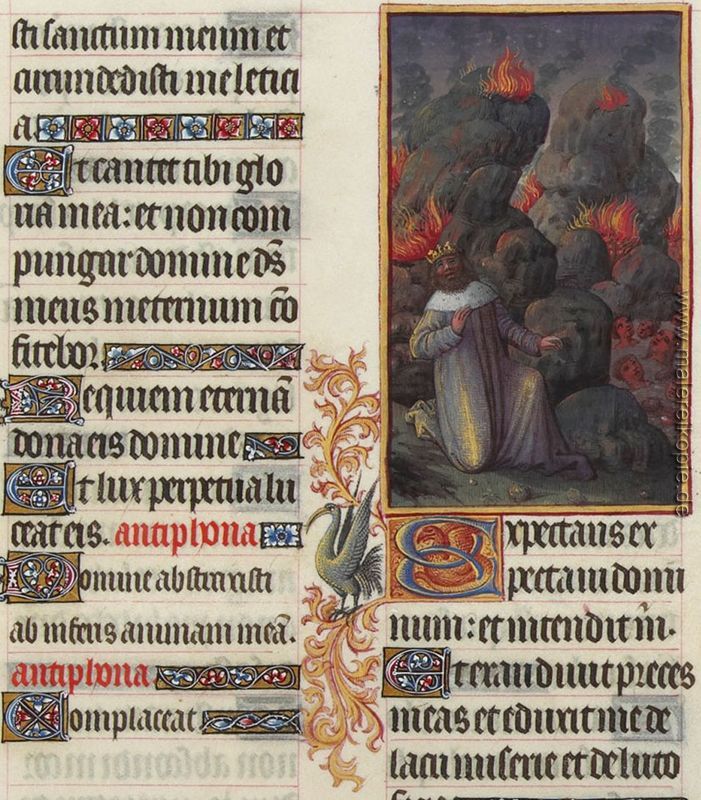 sti sanctum meum et
circumdedisti me letici
a
Et cantet tibi glo
ria mea: et non com
pungar domine ds̄
meus in eternum cō
fitebor
Requiem eternā
dona eis domine
Et lux perpetua lu
ceat eis. antiphona
Domine abstraxisti
ab inferis animam meā.
antiphona
Complaceat
Expectans ex
pectaui domi
num: et intendit m̄.
Et exaudiuit preces
meas et eduxit me de
lacu miserie et de luto
www.malereikopie.de